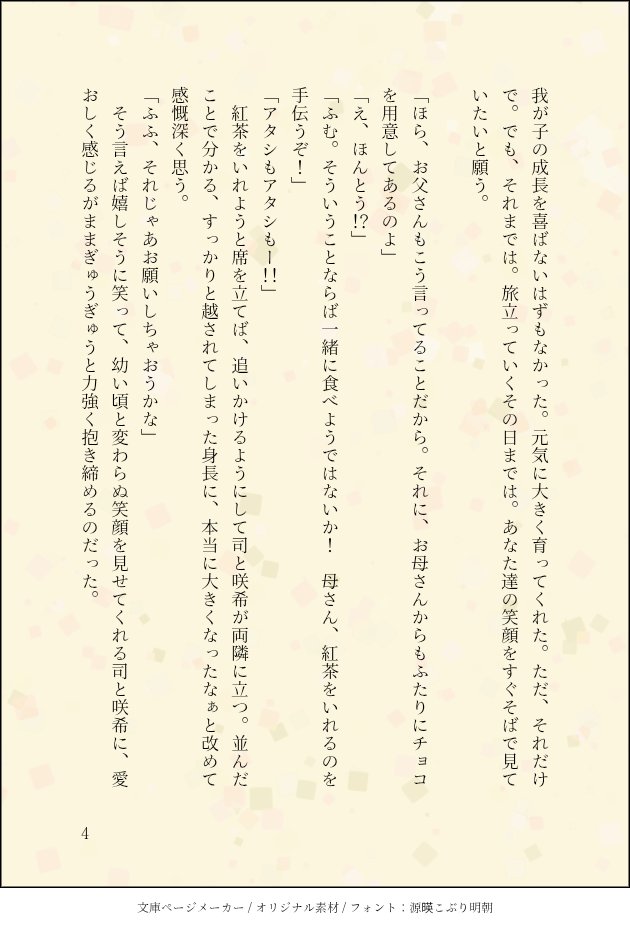 我が子の成長を喜ばないはずもなかった。元気に大きく育ってくれた。ただ、それだけ
で。でも、それまでは。旅立っていくその日までは。あなた達の笑顔をすぐそばで見て
いたいと願う。
「ほら、お父さんもこう言ってることだから。それに、お母さんからもふたりにチョコ
を用意してあるのよ」
「え、ほんとう!?」
「ふむ。そういうことならば一緒に食べようではないか！　母さん、紅茶をいれるのを
手伝うぞ！」
「アタシもアタシもー!!」
　紅茶をいれようと席を立てば、追いかけるようにして司と咲希が両隣に立つ。並んだ
ことで分かる、すっかりと越されてしまった身長に、本当に大きくなったなぁと改めて
感慨深く思う。
「ふふ、それじゃあお願いしちゃおうかな」
　そう言えば嬉しそうに笑って、幼い頃と変わらぬ笑顔を見せてくれる司と咲希に、愛
おしく感じるがままぎゅうぎゅうと力強く抱き締めるのだった。
4
文庫ページメーカー / オリジナル素材 / フォント：源暎こぶり明朝